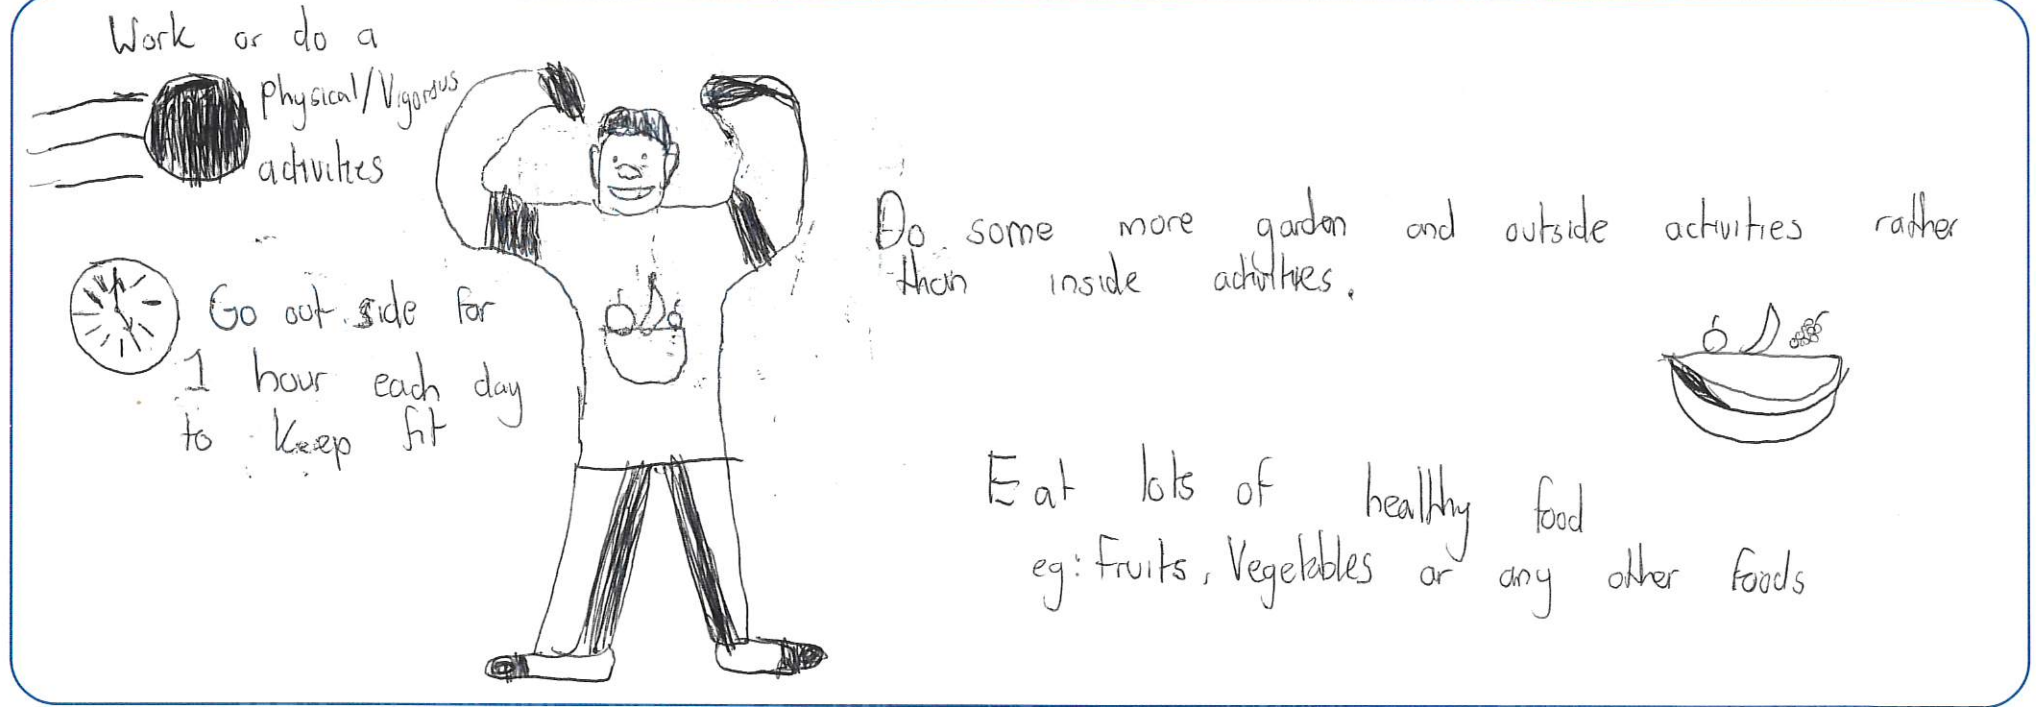 Work or do a
Physical/Vigorous
activities
Go out side for
1 hour each day
to keep fit
Do some more garden and outside activities rather
than inside activities.
Eat lots of healthy food
eg: Fruits, Vegetables or any other foods